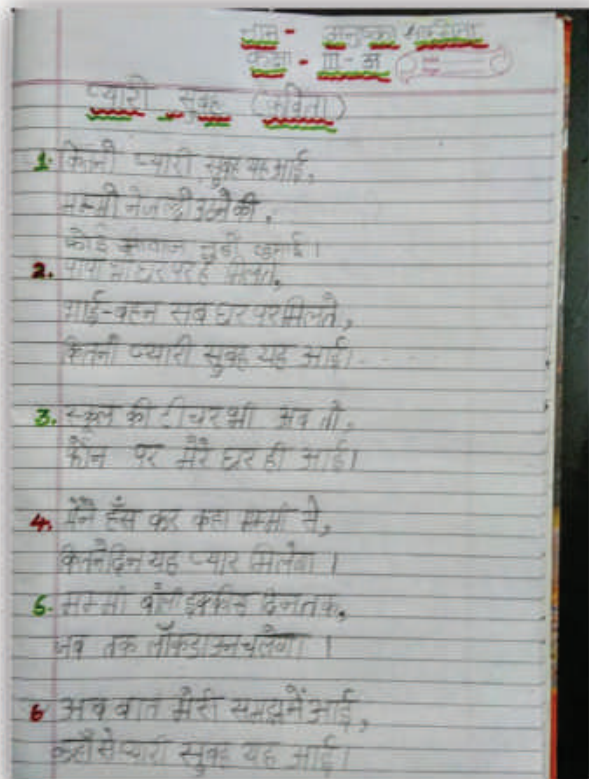 नाम - अनुष्का
कक्षा - III - अ
प्यारी सुबह (कविता)
1. कितनी प्यारी सुबह यह आई,
मम्मी ने जल्दी उठने की,
कोई आवाज नहीं लगाई।
2. पापा भी घर पर हैं मिलते,
भाई-बहन सब घर पर मिलते,
कितनी प्यारी सुबह यह आई।
3. स्कूल की टीचर भी अब तो,
फोन पर मेरे घर ही आई।
4. मैंने हँस कर कहा मम्मी से,
कितने दिन यह प्यार मिलेगा।
5. मम्मी बोली इक्कीस दिन तक,
जब तक लॉकडाउन चलेगा।
6 अब बात मेरी समझ में आई,
कहाँ से प्यारी सुबह यह आई।